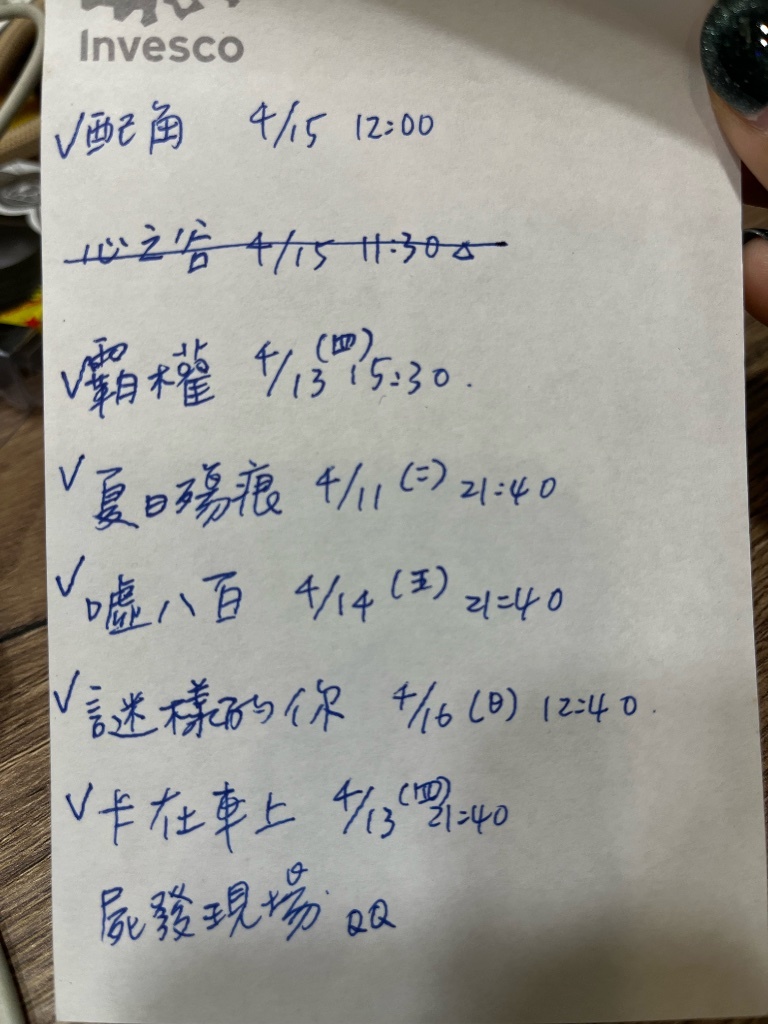 Invesco
✓配角 4/15 12:00
心之谷 4/15 11:30 △
✓霸權 4/13 (四) 15:30.
✓夏日殤痕 4/11 (二) 21:40
✓噓八百 4/14 (五) 21:40
✓謎樣的你 4/16 (日) 12:40.
✓卡在車上 4/13 (四) 21:40
屍發現場 QQ